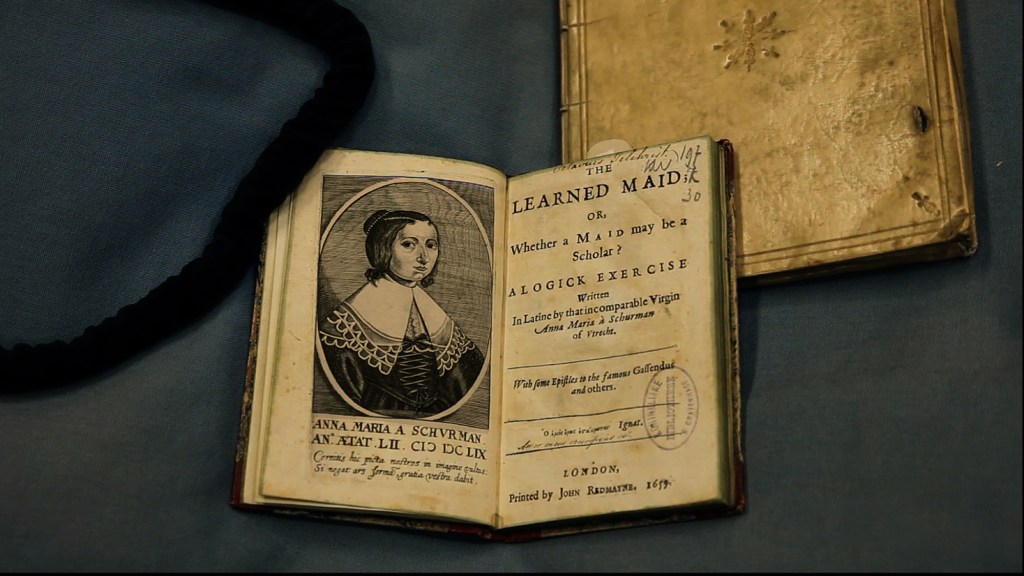 ANNA MARIA A SCHVRMAN
AN° ÆTAT. LII. CIↃ IↃC LIX
Cernitis hic picta nostros in imagine vultus:
Si negat ars formā, gratia vestra dabit.
197
30
THE
LEARNED MAID;
OR,
Whether a MAID may be a
Scholar?
A LOGICK EXERCISE
Written
In Latine by that incomparable Virgin
Anna Maria à Schurman
of Vtrecht.
With some Epistles to the famous Gassendus
and others.
Ignat.
LONDON,
Printed by JOHN REDMAYNE, 1659.